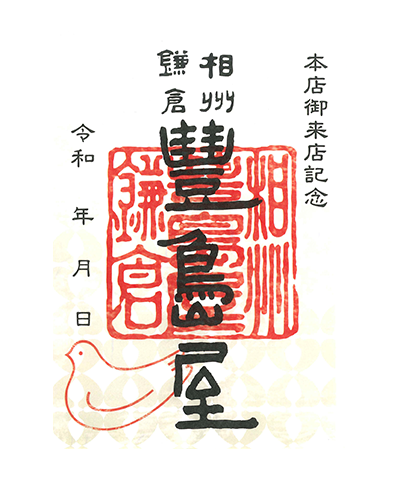 本店御来店記念
相州
鎌倉
豐島屋
令和 年 月 日
相州
豐島屋
鎌倉